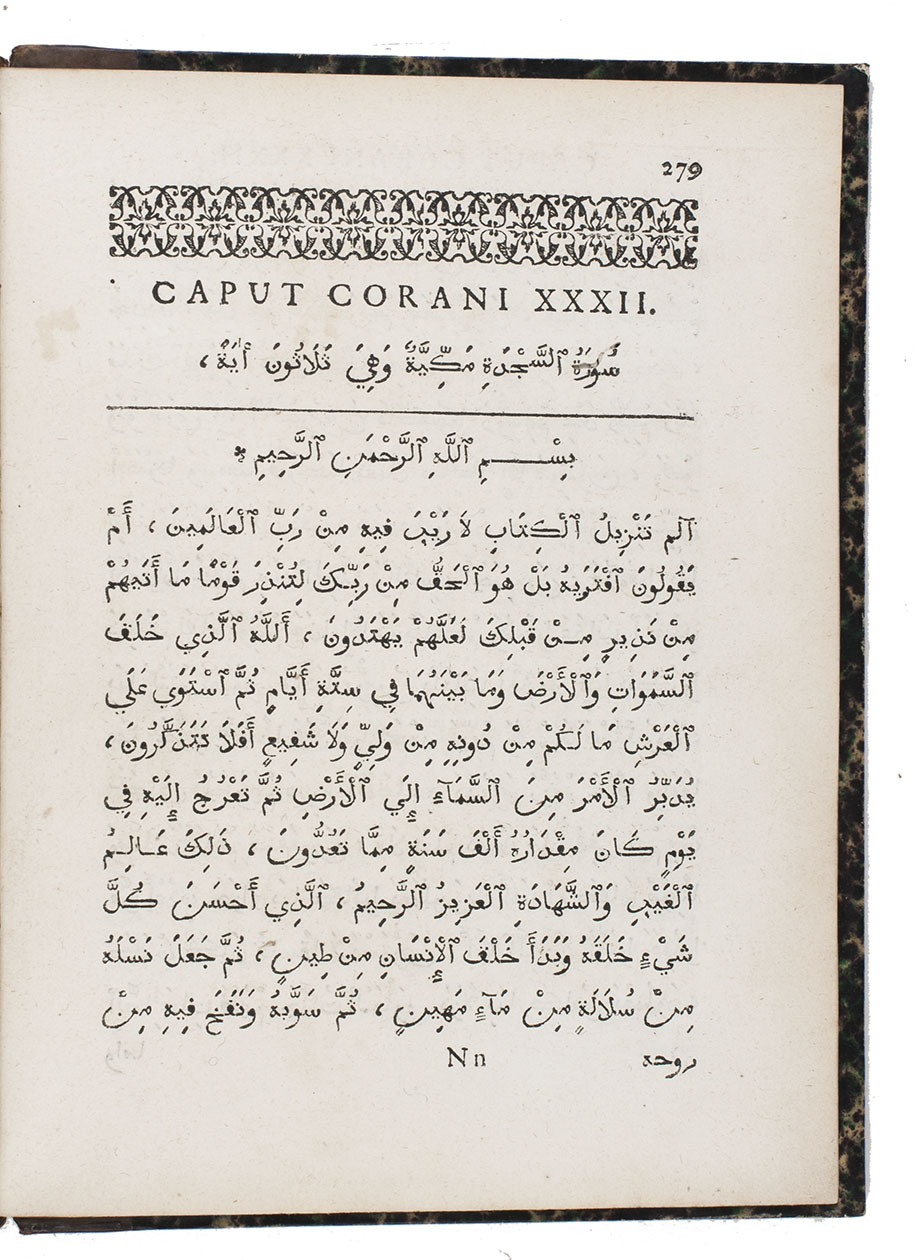 279
CAPUT CORANI XXXII.
سُورَةُ ٱلسَّجْدَةِ مَكِّيَّةٌ وَهِيَ ثَلَاثُونَ أٰيَةً ،
بِسْــــمِ ٱللَّهِ ٱلرَّحْمَنِ ٱلرَّحِيمِ *
آلم تَنْزِيلُ ٱلْكِتَابِ لاَ رَيْبَ فِيهِ مِنْ رَبِّ ٱلْعَالَمِينَ ، أَمْ
يَقُولُونَ ٱفْتَرَيهُ بَلْ هُوَ ٱلْحَقُّ مِنْ رَبِّكَ لِتُنْذِرَ قَوْمًا مَا أَتَيهُمْ
مِنْ نَذِيرٍ مِنْ قَبْلِكَ لَعَلَّهُمْ يَهْتَدُونَ ، أَللَّهُ ٱلَّذِي خَلَقَ
ٱلسَّمَوَاتِ وَٱلْأَرْضَ وَمَا بَيْنَهُمَا فِي سِتَّةِ أَيَّامٍ ثُمَّ ٱسْتَوَي عَلَي
ٱلْعَرْشِ مَا لَكُمْ مِنْ دُونِهِ مِنْ وَلِيٍّ وَلَا شَفِيعٍ أَفَلَا تَتَذَكَّرُونَ ،
يُدَبِّرُ ٱلْأَمْرَ مِنَ ٱلسَّمَآءِ إِلَي ٱلْأَرْضِ ثُمَّ تَعْرُجُ إِلَيْهِ فِي
يَوْمٍ كَانَ مِقْدَارُهُ أَلْفَ سَنَةٍ مِمَّا تَعُدُّونَ ، ذَلِكَ عَالِمُ
ٱلْغَيْبِ وَٱلشَّهَادَةِ ٱلْعَزِيزُ ٱلرَّحِيمُ ، ٱلَّذِي أَحْسَنَ كُلَّ
شَيْءٍ خَلَقَهُ وَبَدَأَ خَلْقَ ٱلْإِنْسَانِ مِنْ طِينٍ ، ثُمَّ جَعَلَ نَسْلَهُ
مِنْ سُلَالَةٍ مِنْ مَآءٍ مَهِينٍ ، ثُمَّ سَوَّيهُ وَنَفَخَ فِيهِ مِنْ
روحه
Nn